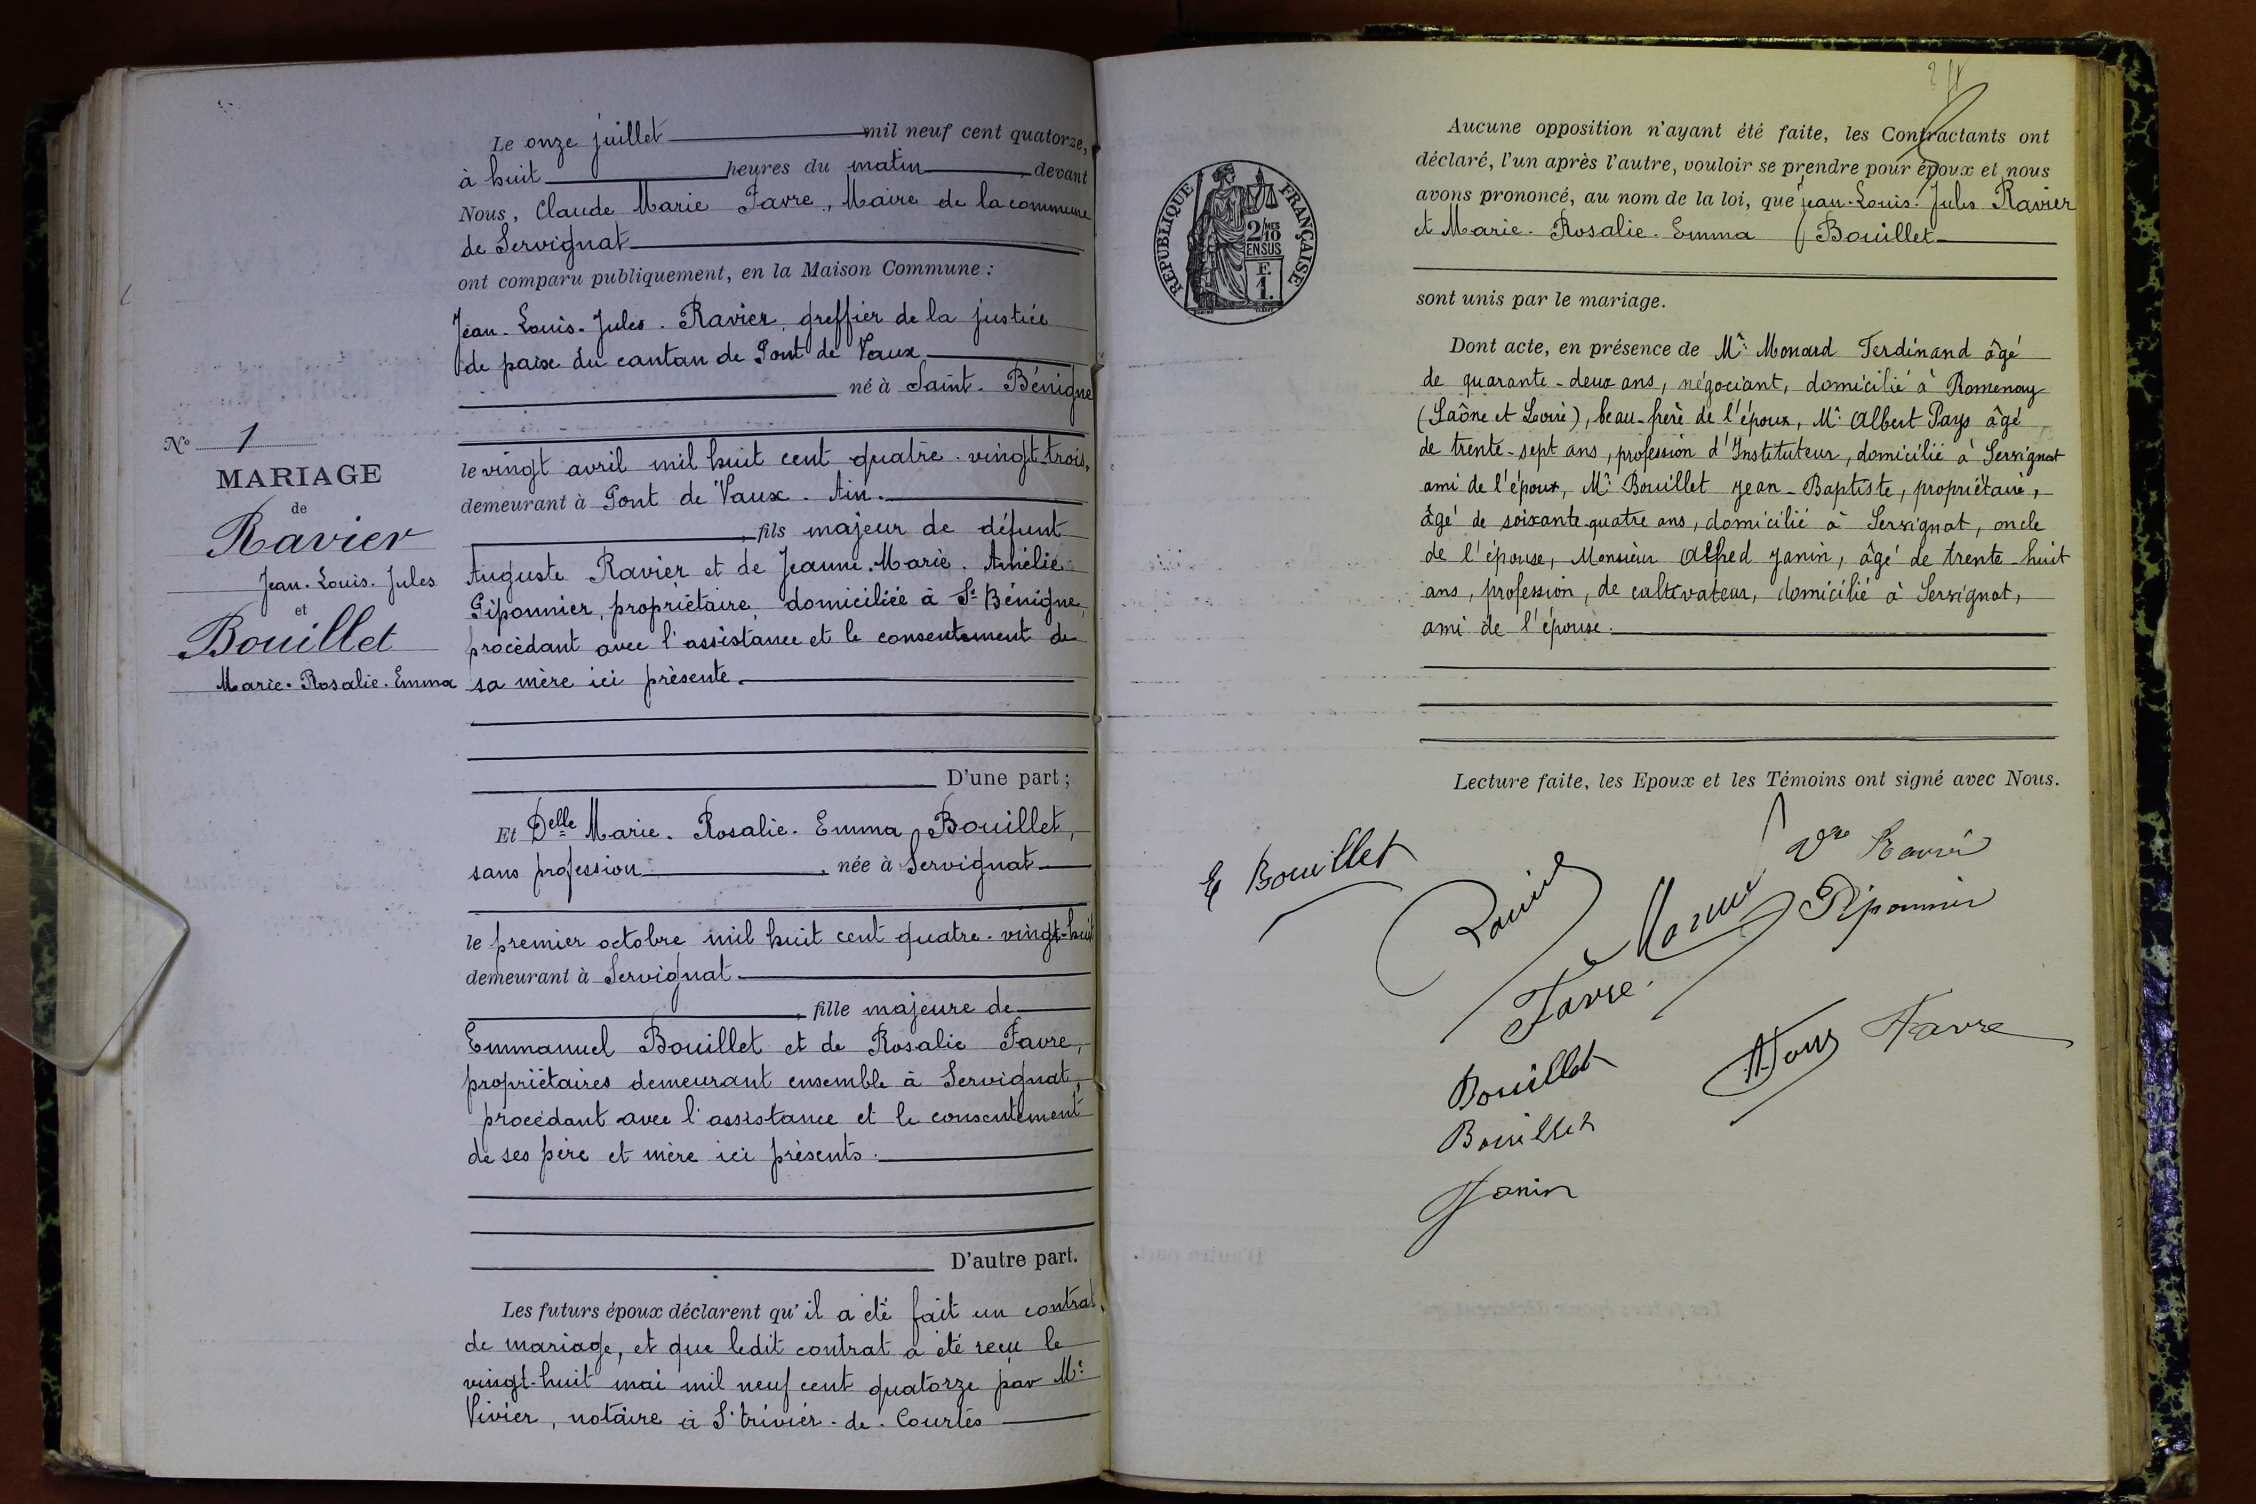 Nº 1
MARIAGE
de
Ravier
Jean. Louis. Jules
et
Bouillet
Marie. Rosalie. Emma
Le onze juillet mil neuf cent quatorze,
à huit heures du matin, devant
Nous, Claude Marie Favre, Maire de la commune
de Servignat
ont comparu publiquement, en la Maison Commune :
Jean. Louis. Jules. Ravier, greffier de la justice
de paix du cantan de Pont de Vaux
né à Saint. Bénigne
le vingt avril mil huit cent quatre. vingt-trois,
demeurant à Pont de Vaux. Ain.
, fils majeur de défunt
Auguste Ravier et de Jeanne. Marie. Amélie
Giponnier, propriétaire domiciliée à St Bénigne,
procédant avec l'assistance et le consentement de
sa mère ici présente.
D'une part ;
Et Delle Marie. Rosalie. Emma Bouillet,
sans profession, née à Servignat
le premier octobre mil huit cent quatre. vingt-huit
demeurant à Servignat
, fille majeure de
Emmanuel Bouillet et de Rosalie Favre,
propriétaires demeurant ensemble à Servignat,
procédant avec l'assistance et le consentement
de ses père et mère ici présents.
D'autre part.
Les futurs époux déclarent qu'il a été fait un contrat
de mariage, et que ledit contrat a été reçu le
vingt-huit mai mil neuf cent quatorze par Me
Vivier, notaire à St trivier. de. Courtes
RÉPUBLIQUE FRANÇAISE
2/10 MES
EN SUS
F.
1.
Aucune opposition n'ayant été faite, les Contractants ont
déclaré, l'un après l'autre, vouloir se prendre pour époux et nous
avons prononcé, au nom de la loi, que Jean. Louis. Jules Ravier
et Marie. Rosalie. Emma Bouillet
sont unis par le mariage.
Dont acte, en présence de Mr Monard Ferdinand âgé
de quarante-deux ans, négociant, domicilié à Romenay
(Saône et Loire), beau-frère de l'époux, Mr Albert Pays âgé
de trente-sept ans, profession d'Instituteur, domicilié à Servignat
ami de l'époux, Mr Bouillet Jean-Baptiste, propriétaire,
âgé de soixante quatre ans, domicilié à Servignat, oncle
de l'épouse, Monsieur Alfred Janin, âgé de trente-huit
ans, profession, de cultivateur, domicilié à Servignat,
ami de l'épouse.
Lecture faite, les Epoux et les Témoins ont signé avec Nous.
E Bouillet
Ravier
Vve Ravier
Giponnier
Favre
Favre
Bouillet
Bouillet
Janin